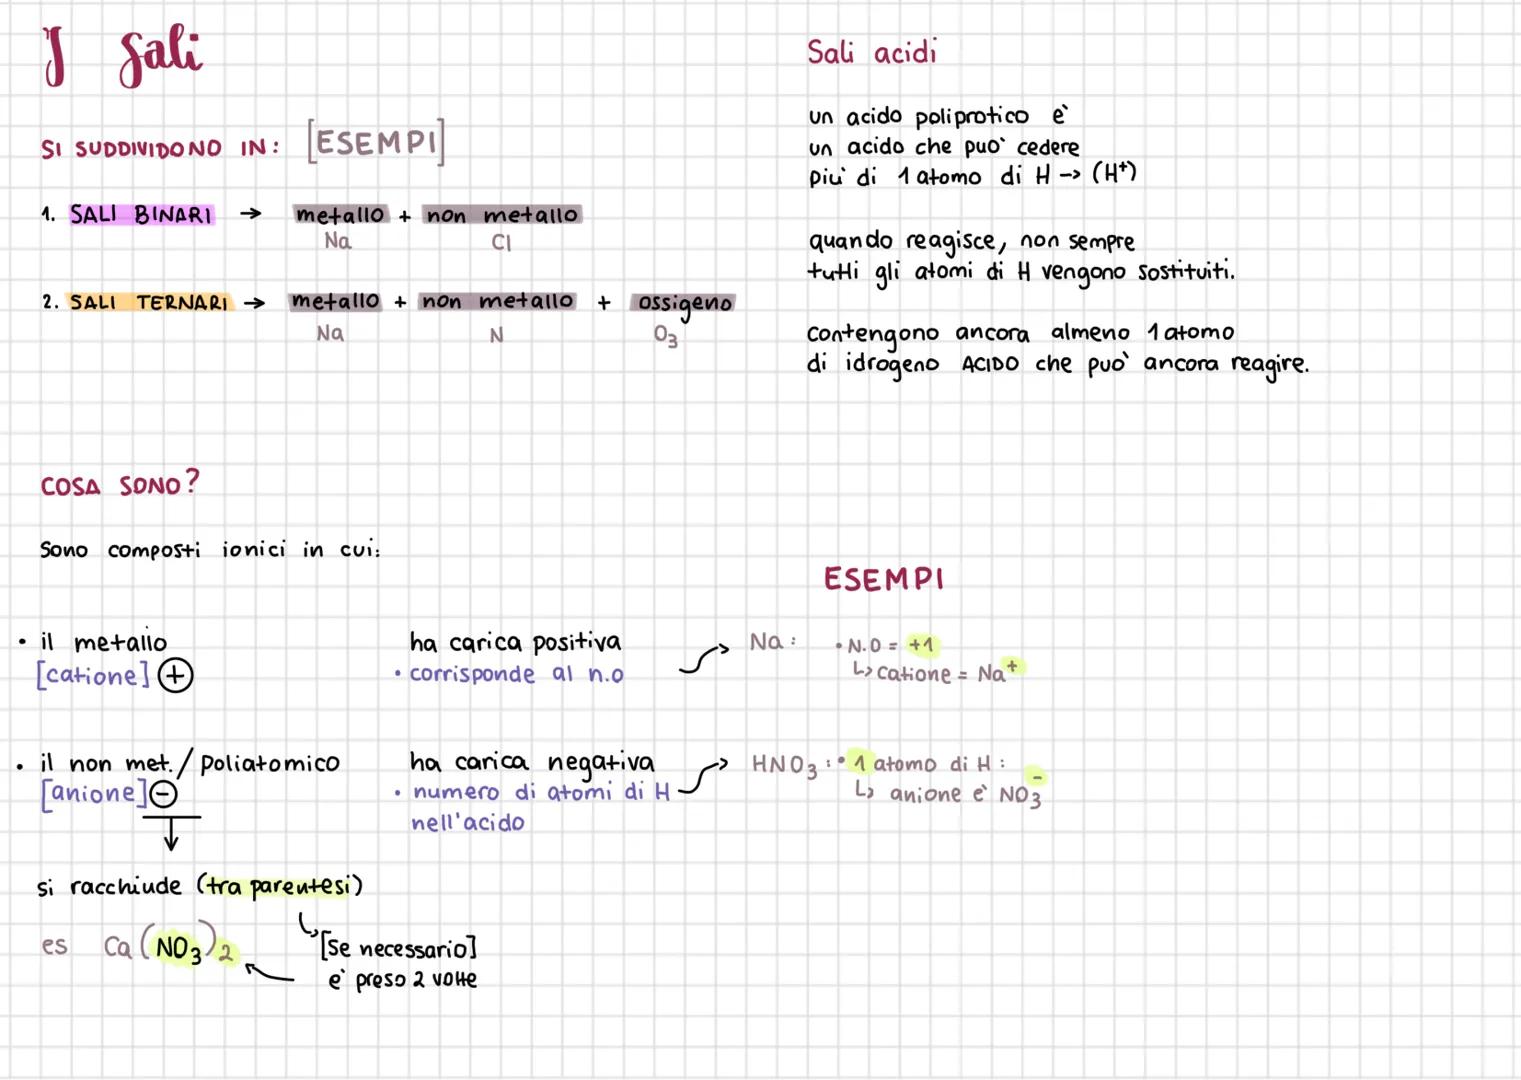 I Sali
SI SUDDIVIDONO IN: [ESEMPI]
1. SALI BINARI → metallo + non metallo
Na Cl
2. SALI TERNARI → metallo + non metallo + ossigeno
Na N O₃
COSA SONO?
Sono composti ionici in cui:
• il metallo ha carica positiva
[catione] ⊕ • corrisponde al n.o
• il non met./poliatomico ha carica negativa
[anione] ⊖ • numero di atomi di H
nell'acido
↓
si racchiude (tra parentesi)
es Ca(NO₃)₂
[Se necessario]
e' preso 2 volte
Sali acidi
un acido poliprotico e'
un acido che puo' cedere
piu' di 1 atomo di H → (H⁺)
quando reagisce, non sempre
tutti gli atomi di H vengono sostituiti.
contengono ancora almeno 1 atomo
di idrogeno ACIDO che puo' ancora reagire.
ESEMPI
Na: • N.O = +1
↳ catione = Na⁺
HNO₃: • 1 atomo di H:
↳ anione e' NO₃⁻